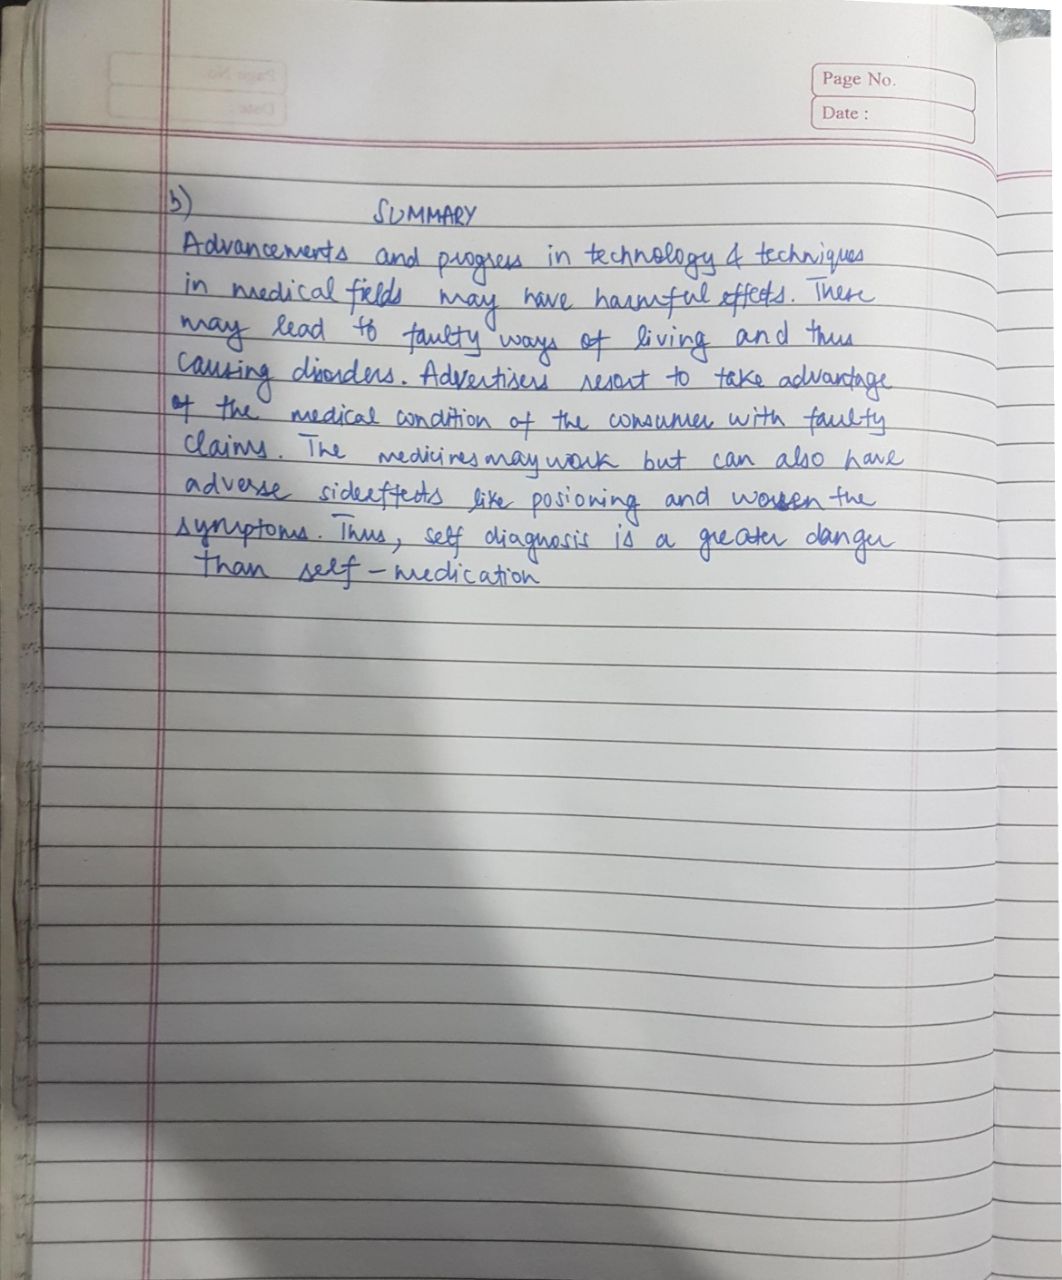 Page No.
Date :
b)
SUMMARY
Advancements and progress in technology & techniques
in medical fields may have harmful effects. These
may lead to faulty ways of living and thus
causing disorders. Advertisers resort to take advantage
of the medical condition of the consumer with faulty
claims. The medicines may work but can also have
adverse sideeffects like posioning and worsen the
symptoms. Thus, self diagnosis is a greater danger
than self-medication